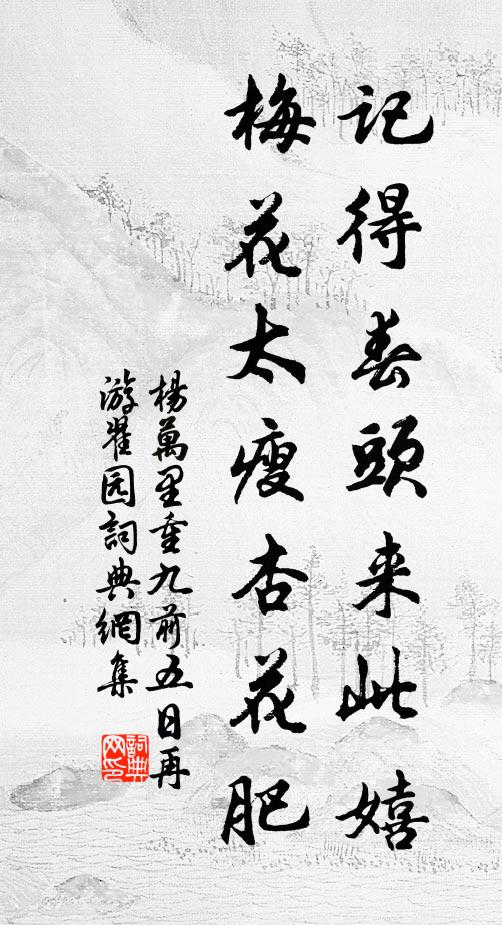 記得春頭来此嬉
梅花太瘦杏花肥
楊萬里重九前五日再
游翟园詞典網集
詞典网印